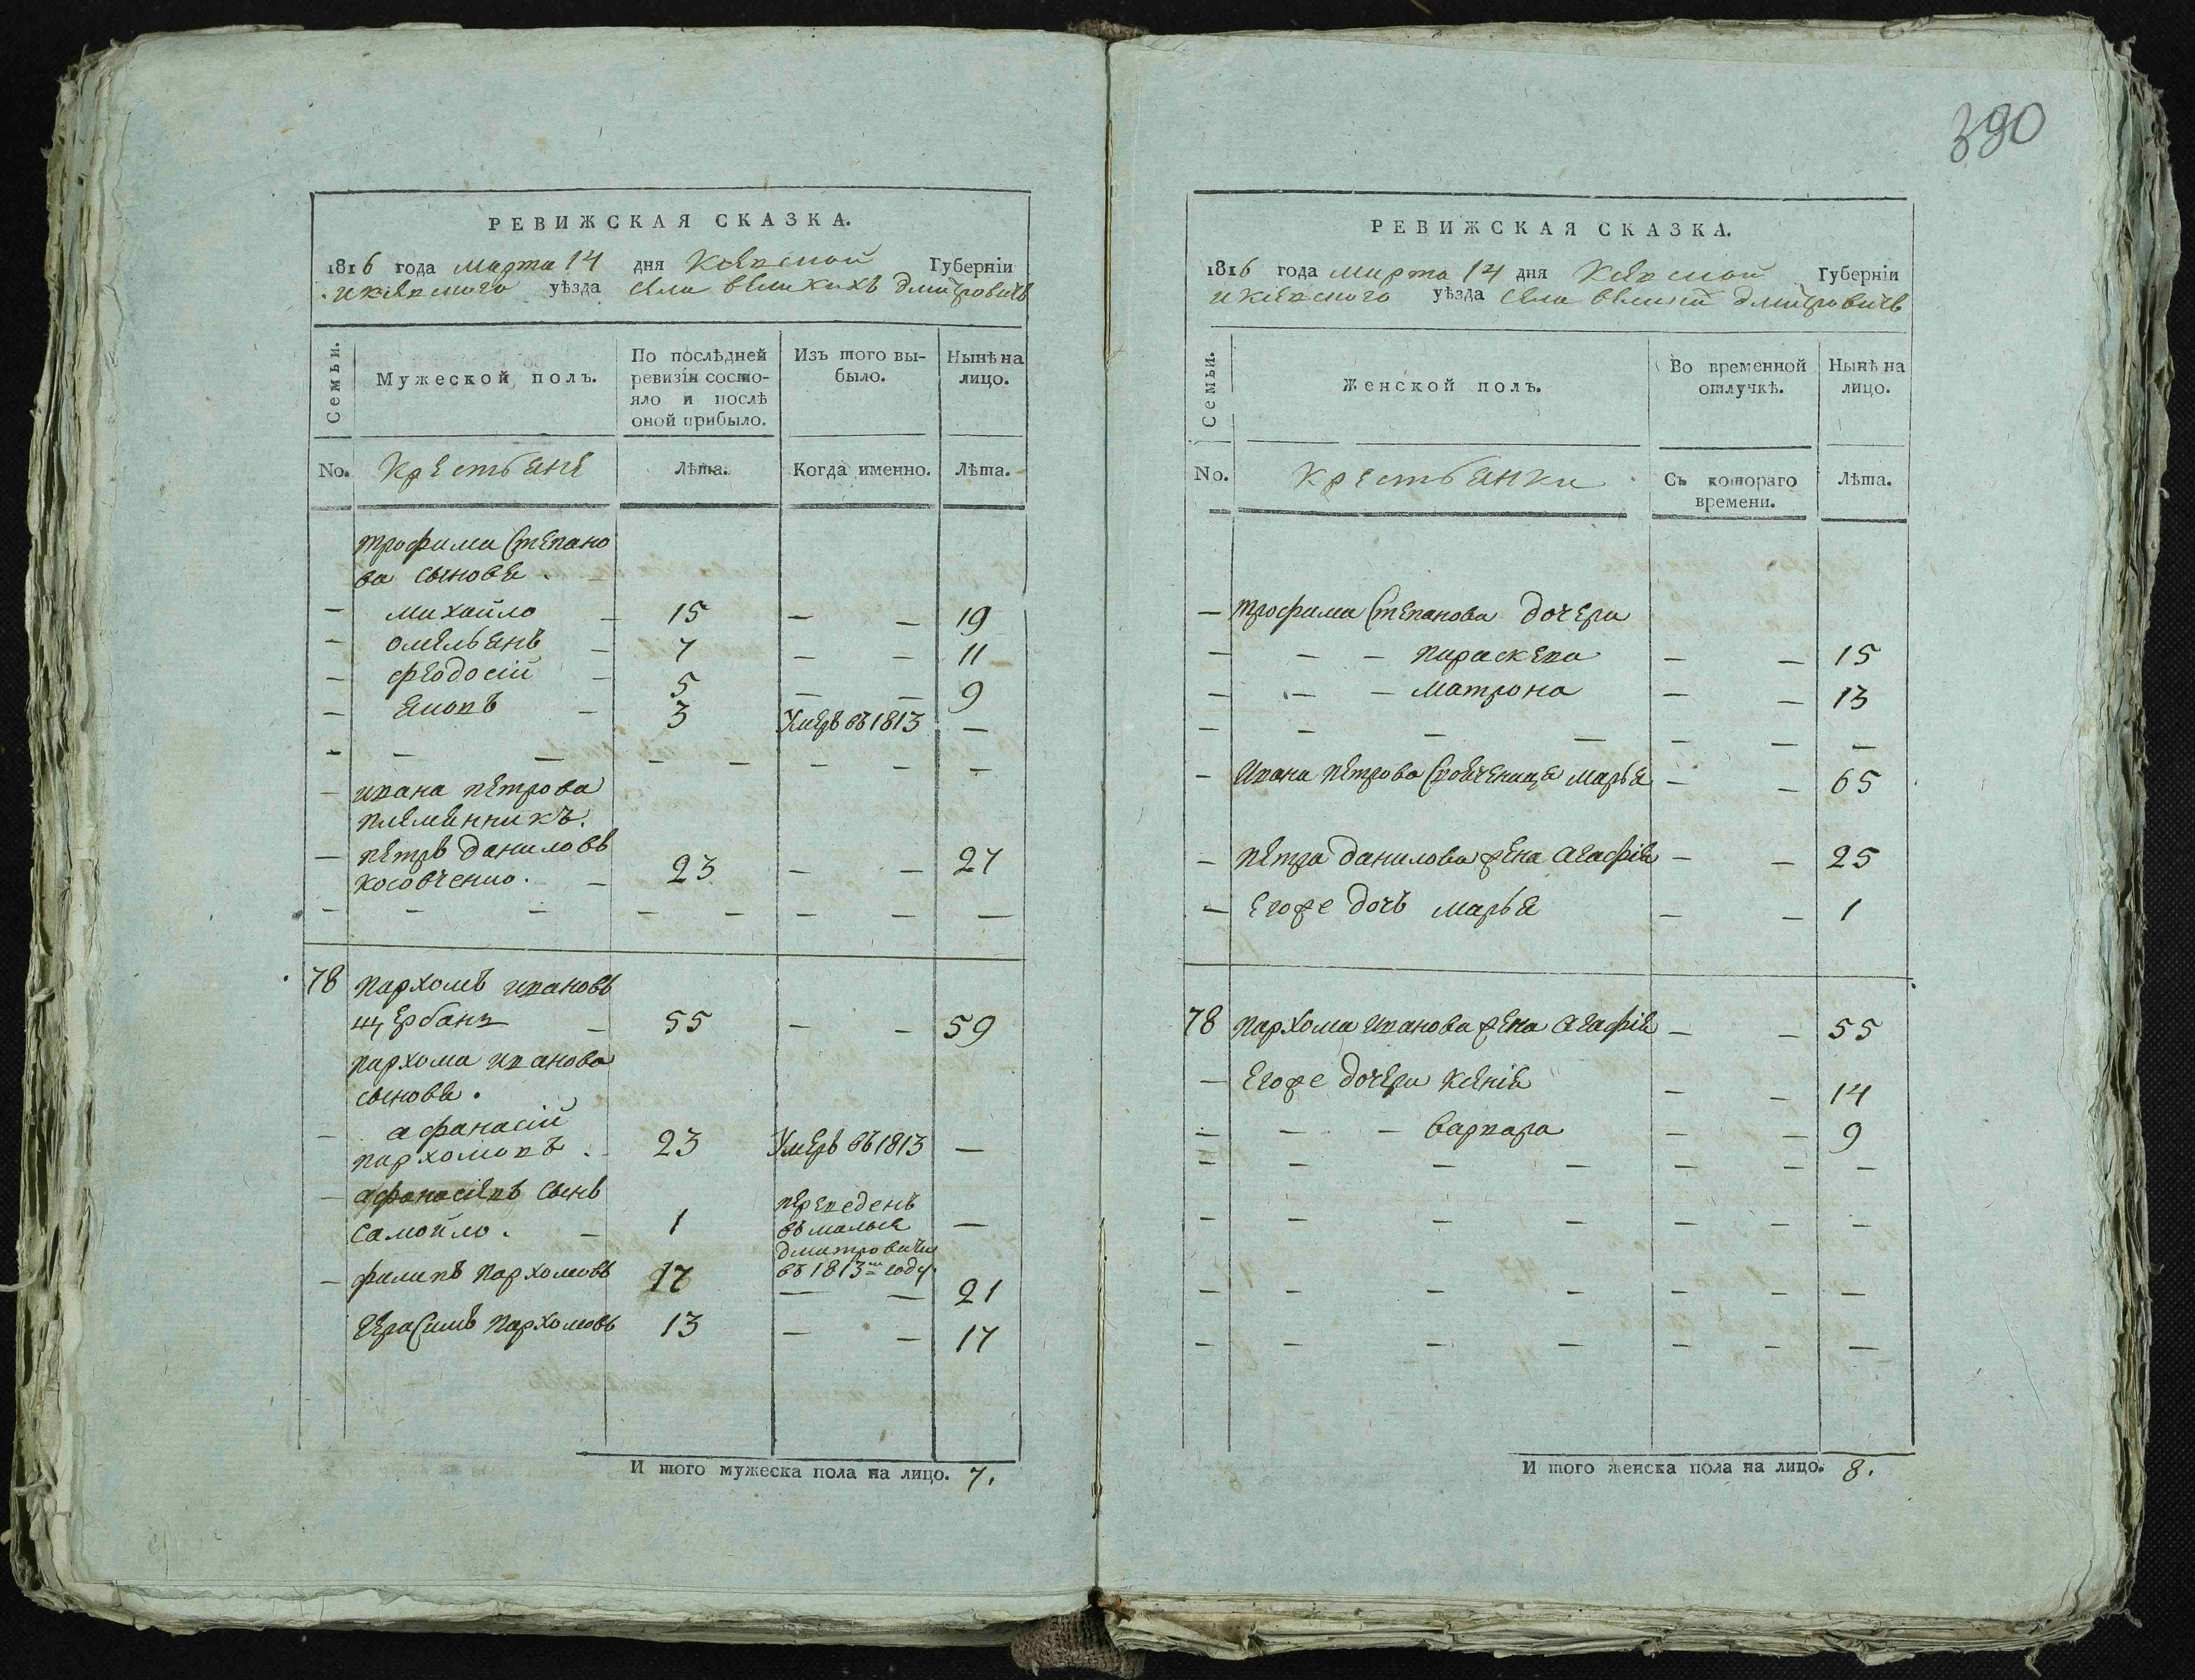 390
РЕВИЖСКАЯ СКАЗКА.
1816 года марта 14 дня Кіевской Губерніи
и кіевского уѣзда села великихъ дмитровичъ
Семьи.
Мужеской полъ.
По послѣдней ревизіи состо-
яло и послѣ
оной прибыло.
Изъ того вы-
было.
Нынѣ на
лицо.
No.
Крестьяне
Лѣта.
Когда именно.
Лѣта.
трофима Степано
ва сыновья .
— михайло — 15 — — 19
— омельянъ — 7 — — 11
— феодосій — 5 — — 9
— яковъ — 3 Умеръ въ 1813 —
— — — — — — — —
— ивана петрова
племянникъ.
— петръ даниловъ
косовченко. — 23 — — 27
— — — — — — — —
78 пархомъ ивановъ
щербанъ — 55 — — 59
пархома иванова
сыновья .
— афанасій
пархомовъ . - 23 Умеръ въ 1813 —
— афанасіевъ сынъ
самойло . — 1 переведенъ
въ малые
дмитровичи
въ 1813м году —
— филипъ пархомовъ 17 — — 21
Герасимъ пархомовъ 13 — — 17
И того мужеска пола на лицо. 7.
РЕВИЖСКАЯ СКАЗКА.
1816 года марта 14 дня Кіевской Губерніи
и кіевского уѣзда села дмитровичъ
Семьи.
Женской полъ.
Во временной
отлучкѣ.
Нынѣ на
лицо.
No.
крестьянки
Съ котораго
времени.
Лѣта.
— трофима Степанова дочери
— — — параскева — — 15
— — — матрона — — 13
— — — — — — —
— Ивана петрова марья — — 65
— петра данилова жена агафія — — 25
— Егоже дочь марья — — 1
78 пархома иванова жена агафія — — 55
— Егоже дочери ксенія — — 14
— — — варвара — — 9
— — — — — — —
— — — — — — —
— — — — — — —
— — — — — — —
И того женска пола на лицо. 8.